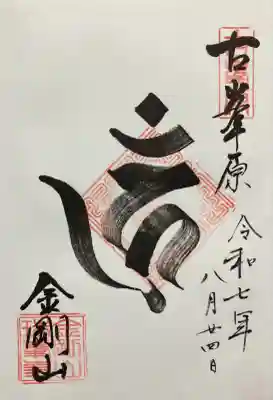 古峯原
令和七年
八月廿四日
金剛山